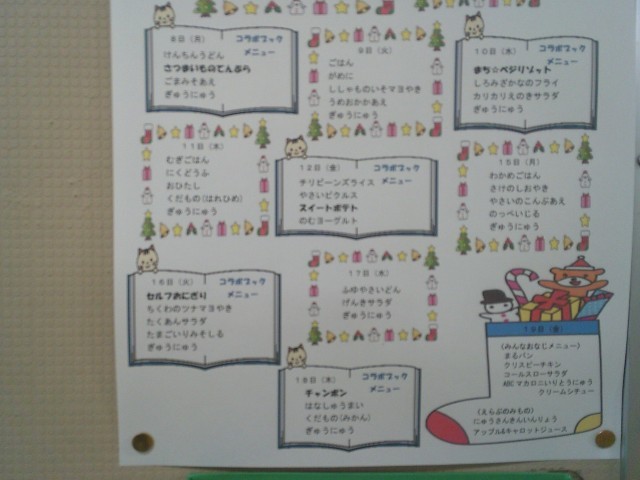 8日(月)
コラボブック
メニュー
けんちんうどん
さつまいものてんぷら
ごまみそあえ
ぎゅうにゅう
9日(火)
ごはん
がめに
ししゃものいそマヨやき
うめおかかあえ
ぎゅうにゅう
10日(水)
コラボブック
メニュー
まち☆ベジリゾット
しろみざかなのフライ
カリカリえのきサラダ
ぎゅうにゅう
11日(木)
むぎごはん
にくどうふ
おひたし
くだもの(はれひめ)
ぎゅうにゅう
12日(金)
コラボブック
メニュー
チリビーンズライス
やさいピクルス
スイートポテト
のむヨーグルト
15日(月)
わかめごはん
さけのしおやき
やさいのこんぶあえ
のっぺいじる
ぎゅうにゅう
16日(火)
コラボブック
メニュー
セルフおにぎり
ちくわのツナマヨやき
たくあんサラダ
たまごいりみそしる
ぎゅうにゅう
17日(水)
ふゆやさいどん
げんきサラダ
ぎゅうにゅう
18日(木)
コラボブック
メニュー
チャンポン
はなしゅうまい
くだもの(みかん)
ぎゅうにゅう
19日(金)
(みんなおなじメニュー)
まるパン
クリスピーチキン
コールスローサラダ
ABCマカロニいりとうにゅう
クリームシチュー
(えらぶのみもの)
にゅうさんきんいんりょう
アップル&キャロットジュース